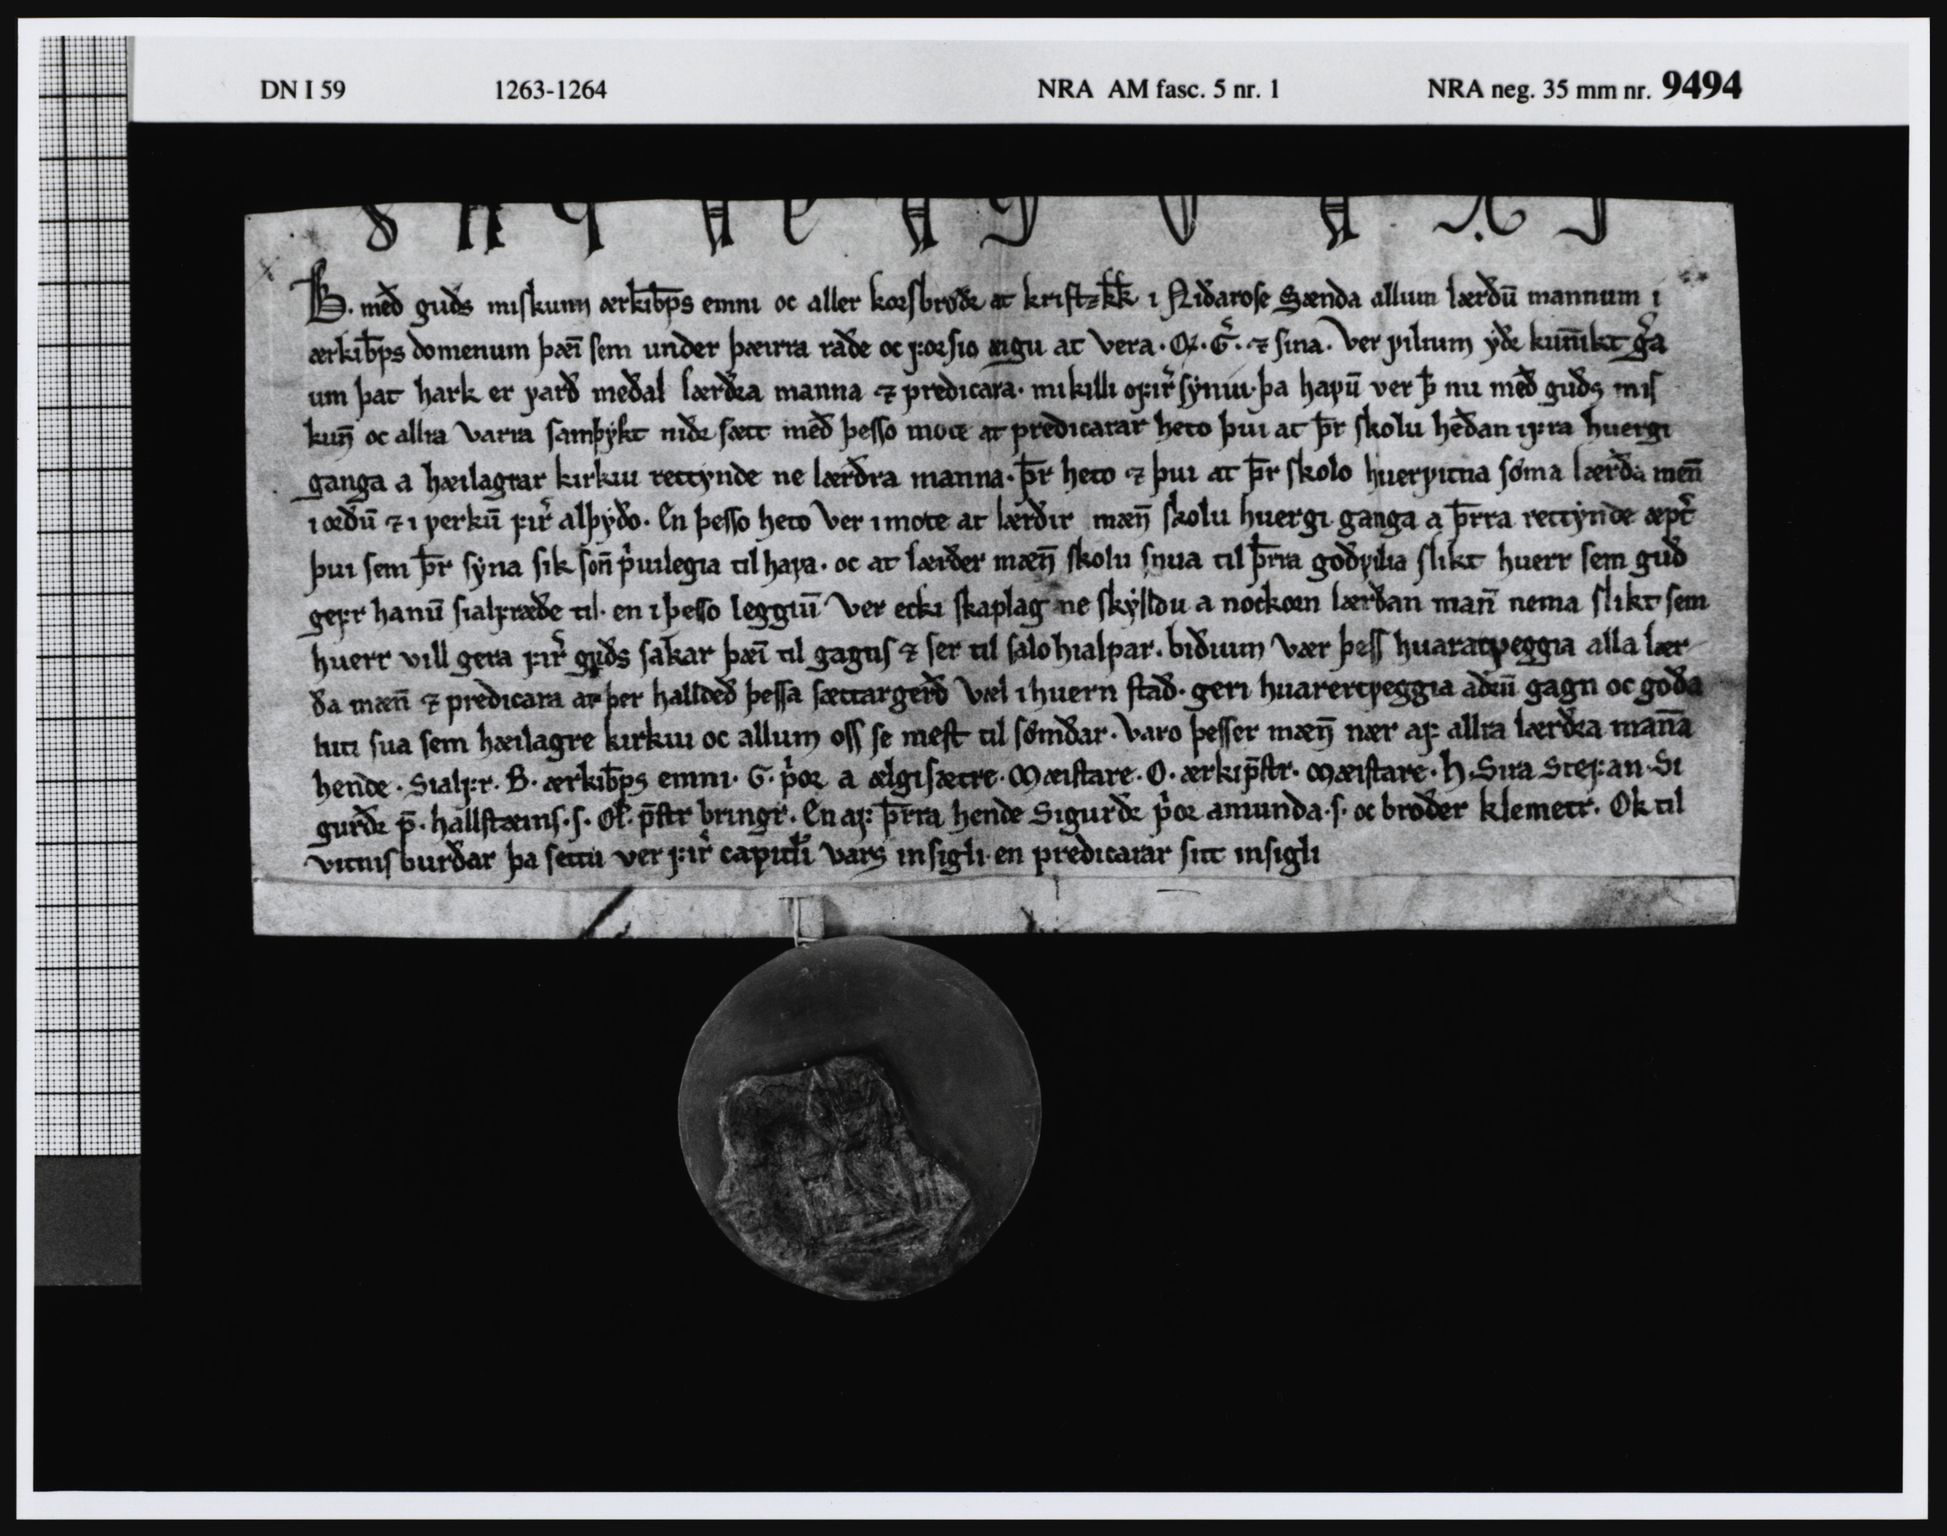 DN I 59 1263-1264 NRA AM fasc. 5 nr. 1 NRA neg. 35 mm nr. 9494
B. með guðs miskunn ærkibps emni oc aller korsbrøðr at kristz kk i Niðarose Sænda allum lærðū mannum i
ærkibps domenum þæī sem under þæirra raðe oc forsio æigu at vera. Q. G. ⁊ sina. Ver vilium yðr kunnikt gera
um þat hark er varð meðal lærðra manna ⁊ predicara. mikilli ofirsyniu. þa hafū ver þ nu með guðs mis
kunn oc allra varra samþykt niðr sætt með þesso mote at predicarar heto þui at þr skolu heðan ifra huergi
ganga a hæilagrar kirkiu rettynde ne lærðra manna. þr heto ⁊ þui at þr skolo huervitna sóma lærða menn
i orðū ⁊ i verkū firir alþyðo. En þesso heto ver imote at lærðir mænn skolu huergi ganga a þrra rettynde æptir
þui sem þr syna sik sonn priuilegia til hafa. oc at lærðer mænn skolu snua til þrra goðvilia slikt huerr sem guð
gefr hanū sialfræðe til. en i þesso leggiū ver ecki skaplag ne skylldu a nockorn lærðan mann nema slikt sem
huerr vill gera firir guðs sakar þæī til gagns ⁊ ser til salohialpar. biðium vær þess huaratveggia alla lær
ða mænn ⁊ predicara at þer hallded þessa sættargerð væl i huern stað. geri huarertveggia aðrū gagn oc goða
luti sua sem hæilagre kirkiu oc allum oss se mest til sómðar. Varo þesser mænn nær af allra lærðra manna
hende. Sialfr. B. ærkibps emni. G. prior a ælgisætre. Mæistare. O. ærkipstr. Mæistare. H. Sira Stefan. Si
gurðr p. hallstæins. s. Ol. pstr bringr. En af þrra hende Sigurðr prior amunda. s. oc broðer klemetr. Ok til
vitnisburðar þa settu ver firir capituli vars insigli. en predicarar sitt insigli